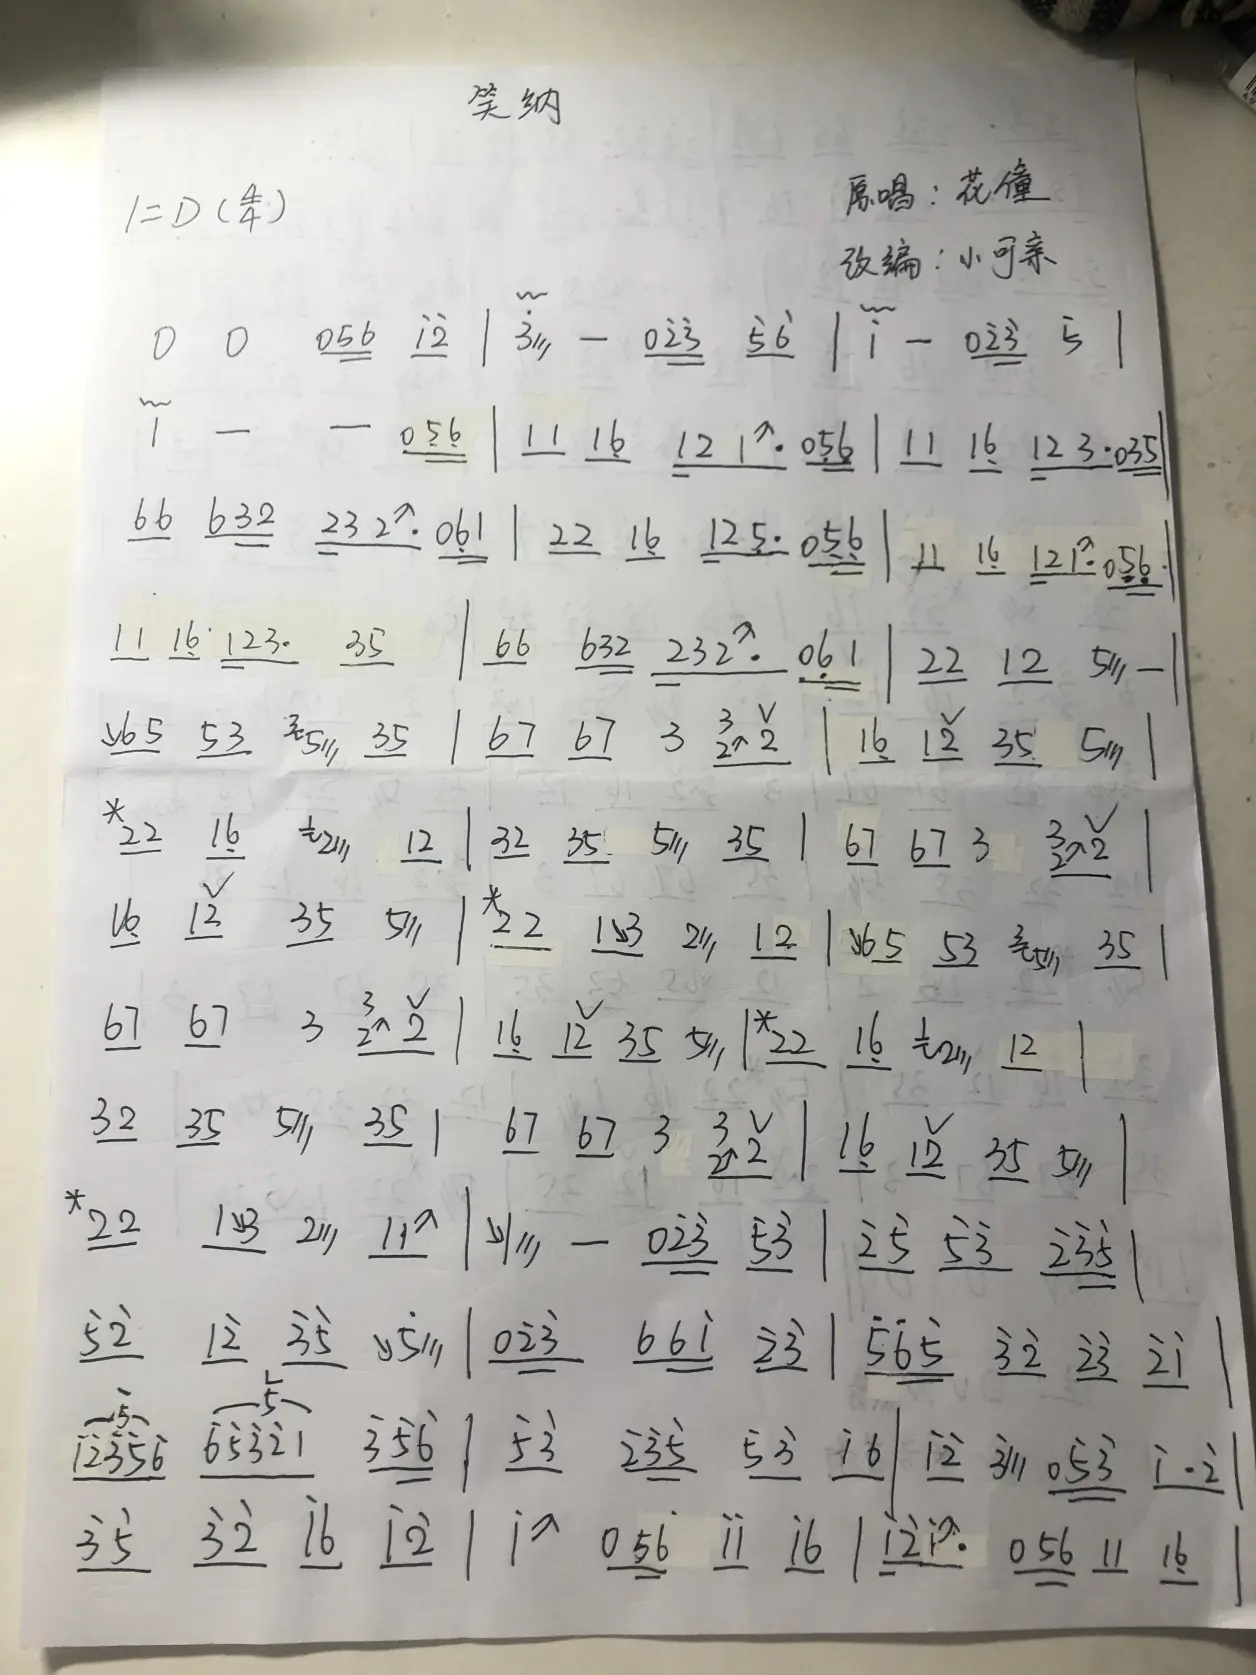 笑纳
1=D(4/4)
原唱：花僮
改编：小可亲
0 0 056 i̇2̇ | 3̇/// — 02̇3̇ 5̇6̇ | i̇ — 02̇3̇ 5̇ |
i̇ — — 05̣6̣ | 11 16̣ 121↗· 05̣6̣ | 11 16̣ 123·035 |
66 632 232↗· 06̣1 | 22 16̣ 125̣· 05̣6̣ | 11 16̣ 121↗· 05̣6̣ |
11 16̣ 123· 35 | 66 632 232↗· 06̣1 | 22 12 5/// — |
↘65 53 ³5/// 35 | 67 67 3 ³2↗2 | 16̣ 12 35 5/// |
*22 16̣ ¹2/// 12 | 32 35 5/// 35 | 67 67 3 ³2↗2 |
16̣ 12 35 5/// | *22 1↘3 2/// 12 | ↘65 53 ³5/// 35 |
67 67 3 ³2↗2 | 16̣ 12 35 5/// | *22 16̣ ¹2/// 12 |
32 35 5/// 35 | 67 67 3 ³2↗2 | 16̣ 12 35 5/// |
*22 1↘3 2/// 11↗ | ↘1/// — 02̇3̇ 5̇3̇ | 2̇5̇ 5̇3̇ 2̇3̇5̇ |
5̇2̇ 12̇ 3̇5̇ ↘5̇/// | 02̇3̇ 66i̇ 2̇3̇ | 5̇6̇5̇ 3̇2̇ 2̇3̇ 2̇i̇ |
5 5
i̇2̇3̇5̇6̇ 6̇5̇3̇2̇1 3̇5̇6̇ | 5̇3̇ 2̇3̇5̇ 5̇3̇ i̇6 | i̇2̇ 3̇/// 05̇3̇ i̇·2̇ |
3̇5̇ 3̇2̇ i̇6 i̇2̇ | i̇↗ 056 i̇i̇ i̇6 | i̇2̇i̇↗· 056 11 16̣ |